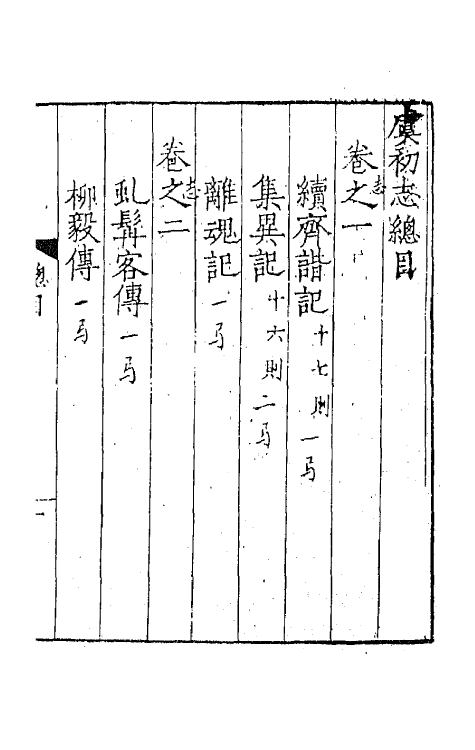 虞初志總目
卷之一
志
續齊諧記 十七則 一马
集異記 十六則 二马
離魂記 一马
卷之二
志
虬髯客傳 一马
柳毅傳 一马
總目
一